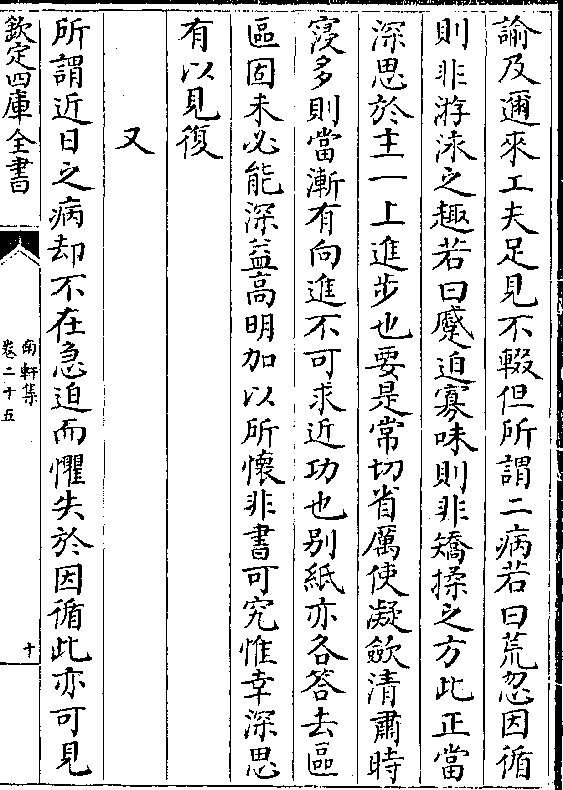 諭及邇來工夫足見不輟但所謂二病若曰荒忽因循
則非游泳之趣若曰蹙迫寡味則非矯揉之方此正當
深思於主一上進步也要是常切省厲使凝歛清肅時
寖多則當漸有向進不可求近功也别紙亦各答去區
區固未必能深益高明加以所懷非書可究惟幸深思
有以見復
又
所謂近日之病却不在急迫而懼失於因循此亦可見
欽定四庫全書
南軒集
卷二十五
十